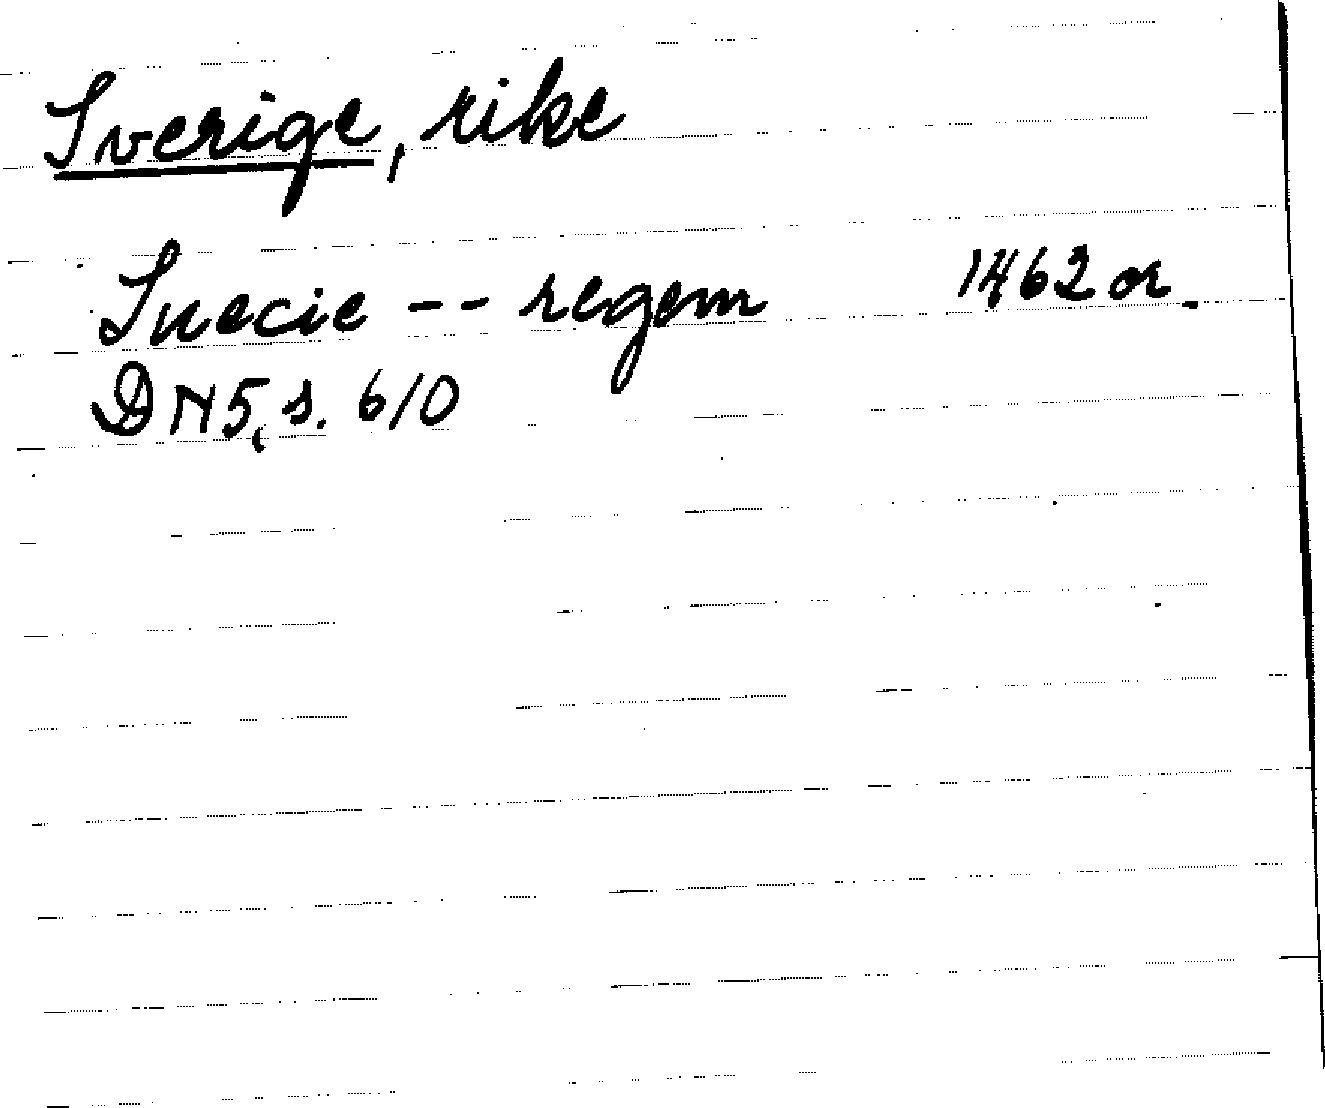 Sverige, rike
Suecie -- regem 1462 or.
DN5, s. 610